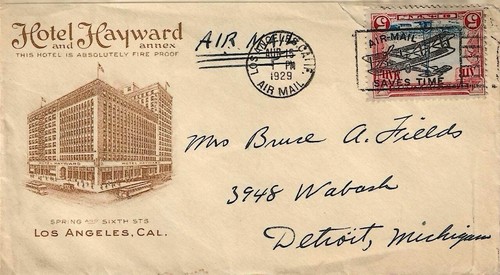 Hotel Hayward
and annex
THIS HOTEL IS ABSOLUTELY FIRE PROOF
AIR MAIL
LOS ANGELES, CALIF.
1 PM
1929
AIR MAIL
AIR-MAIL
SAVES TIME
5 5
HAYWARD
SPRING AND SIXTH STS
LOS ANGELES, CAL.
Mrs Bruce A. Fields
3948 Wabash
Detroit, Michigan